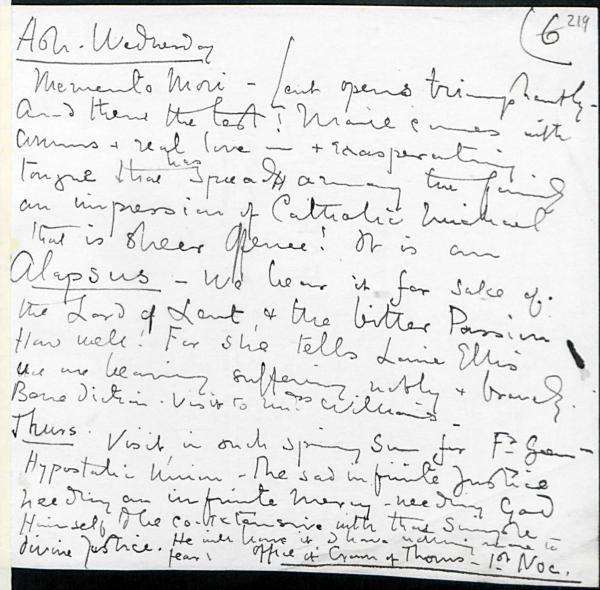 6 219
Ash. Wednesday
Memento Mori - Lent opens triumphantly -
And there the test! Marie comes with
+ real love in + exasperating
tongue that has spread among the family
an impression of Catholic Michael
that is sheer! It is an
Alapsus - We hear it for sake of
the Lord of Lent, & the bitter Passion
How well! For she tells Ellis
we are bearing suffering nobly + bravely.
Benediction. Visit to Mrs Williams -
Thurs. Visit, in such spring sun, for Fr
Hypostatic Union - The sad infinite Justice
needing an infinite mercy - needing God
Himself to be co-extensive with that
divine Justice. He will have it I have nothing more to
fear! Office of Crown of Thorns - 1st Noc.